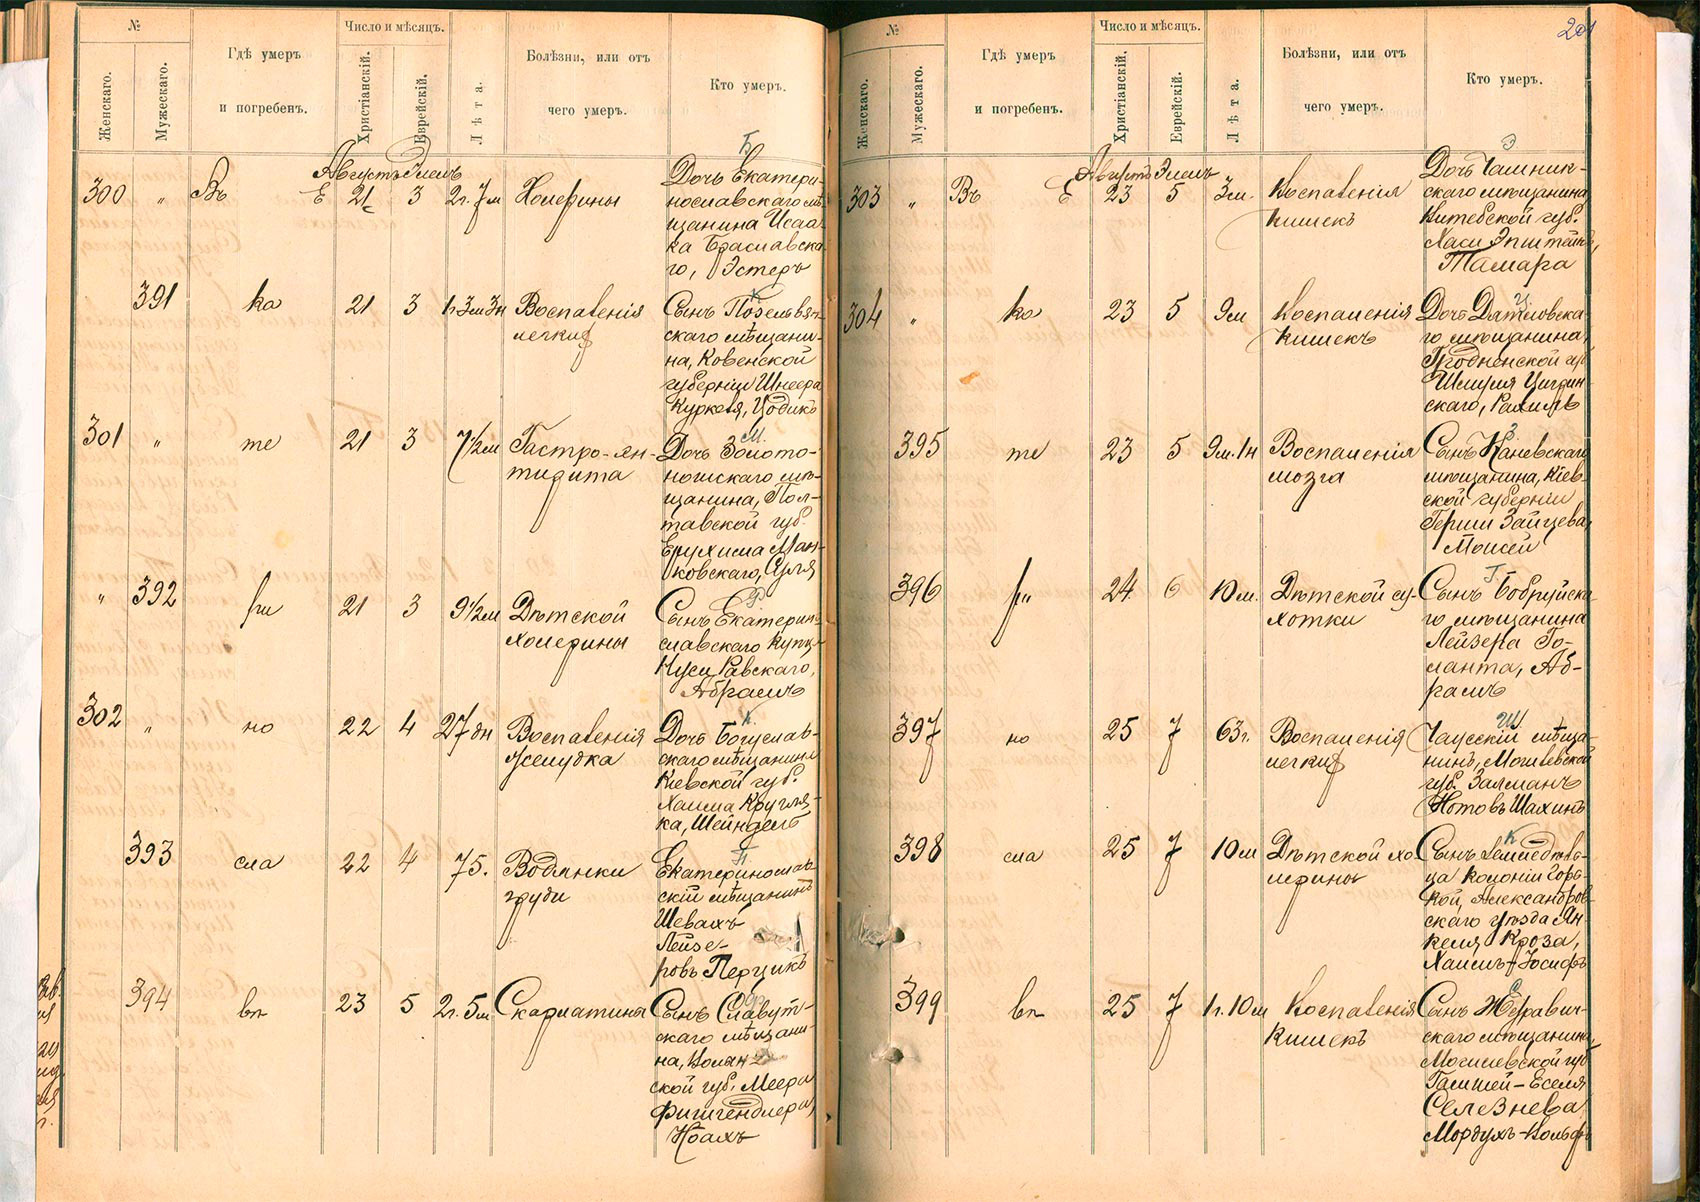 №
Женскаго.
Мужескаго.
Гдѣ умеръ
и погребенъ.
Число и мѣсяцъ.
Христіанскій.
Еврейскій.
Лѣта.
Болѣзни, или отъ
чего умеръ.
Кто умеръ.
Б
Августъ Элелъ
300 „ Въ Е 21 3 2г. 7м Холерины
Дочь Екатери-
нославскаго мѣ-
щанина Исаа-
ка Браславска-
го, Эстеръ
К
391 ка 21 3 1г 3м 3н Воспаленія
легкихъ
Сынъ Позельвян-
скаго мѣщани-
на, Ковенской
губерніи Шнеера
Куркевя, Цодикъ
М.
301 „ те 21 3 7 1/2м Гастро-эн-
терита
Дочь Золото-
ношскаго мѣ-
щанина, Пол-
тавской губ.
Ерухима Ман-
ковскаго, Суля
Р
„ 392 ри 21 3 9 1/2м Дѣтской
холерины
Сынъ Екатерин-
славскаго купца
Нуси Равскаго,
Абрамъ
К.
302 „ но 22 4 27 дн Воспаленія
желудка
Дочь Богуслав-
скаго мѣщанина
Кіевской губ.
Хаима Кругля-
ка, Шейндель
П
393 сла 22 4 75. Водянки
груди
Екатеринослав-
скій мѣщанинъ
Шевахъ
Лейзе-
ровъ Перцикъ
394 вл 23 5 2г. 5м Скарлатины
Сынъ Славут-
скаго мѣщани-
на, Волын-
ской губ. Меера
Фишгендлера,
Ноахъ
201
№
Женскаго.
Мужескаго.
Гдѣ умеръ
и погребенъ.
Число и мѣсяцъ.
Христіанскій.
Еврейскій.
Лѣта.
Болѣзни, или отъ
чего умеръ.
Кто умеръ.
Э
Августъ Элелъ
303 „ Въ Е 23 5 3м. Воспаленія
кишекъ
Дочь Чашник-
скаго мѣщанина
Витебской губ.
Хаси Эпштейнъ,
Тамара
Ц.
304 „ ка 23 5 9м Воспаленія
кишекъ
Дочь Дятловска-
го мѣщанина,
Гродненской губ
Шмуля Цигрин-
скаго, Рахиль
З
395 те 23 5 9м. 1н Воспаленія
мозга
Сынъ Каневскаго
мѣщанина, Кіев-
ской губерніи
Герши Зайцева,
Моисей
Г
396 ри 24 6 10м. Дѣтской су-
хотки
Сынъ Бобруйска-
го мѣщанина
Лейзера Го-
ланта, Аб-
рамъ
Ш
397 но 25 7 63г. Воспаленія
легкихъ
Чаусскій мѣща-
нинъ, Могилевской
губ. Залманъ
Нотовъ Шахинъ
К
398 сла 25 7 10м Дѣтской хо-
лерины
Сынъ земледѣль-
ца колоніи Горь-
кой, Александров-
скаго уѣзда Ян-
келя Кроза,
Хаимъ-Іосифъ
С
399 вл 25 7 1г. 10м Воспаленія
кишекъ
Сынъ Журавич-
скаго мѣщанина,
Могилевской губ
Гамшей-Еселя
Селезнева,
Мордухъ-Вольфъ